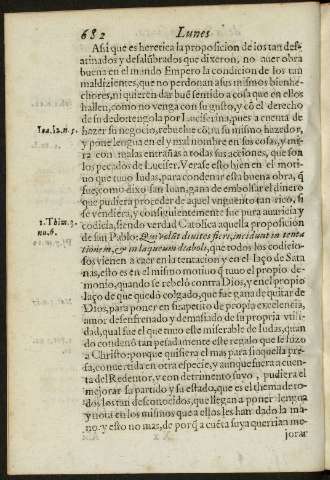 682 Lunes
Assi que es heretica la proposicion de los tan des-
atinados y desalũbrados que dixeron, no auer obra
buena en el mundo Empero la condicion de los tan
maldizientes, que no perdonan a sus mismos bienhe-
chores, ni quieren dar buẽ sentido a cosa que en ellos
hallen, como no venga con su gusto, y cõ el derecho
de su
por Luciferina, pues a cuenta de
Ioa. 12. n. 5.
hazer su negocio, rebuelue cõtra su mismo hazedor,
y pone lengua en el y mal nombre en sus cosas, y mi-
ra con malas entrañas a todas sus acciones, que son
los pecados de Lucifer. Verase esto bien en el mot-
iuo que tuuo Iudas, para condenar esta buena obra, q̃
fue, como dixo san Iuan, gana de embolsar el dinero
que pudiera proceder de aquel vnguento tan rico, si
se vendiera, y consiguientemente fue pura auaricia y
1. Thim. 3.
nu. 6.
codicia, siendo verdad Catolica aquella proposicion
de san Pablo: Qui volũt diuites fieri, incidunt in tenta
tionem, & in laqueum diaboli, que todos los codicio-
sos vienen a caer en la tentacion y en el laço de Sata
nas, esto es en el mismo motiuo q̃ tuuo el propio de-
monio, quando se rebeló contra Dios, y en el propio
laço de que quedó colgado, que fue gana de quitar de
Dios, para poner en si apetito de propia excelencia,
amor desenfrenado y demasiado de su propria vtili-
dad, qual fue el que tuuo este miserable de Iudas, quan
do condenó tan pesadamente este regalo que se hizo
a Christo: porque quisiera el mas para si aquella pre-
sa, conuertida en otra especie, y aunque fuera a cuen-
ta del Redentor, y con detrimento suyo, pudiera el
mejorar su partido y su estado, que es el thema de to-
dos los tan desconocidos, que llegan a poner lengua
y nota en los mismos que a ellos les han dado la ma-
no: y esto no mas, de por q̃ a cuẽta suya querrian me-
jorar